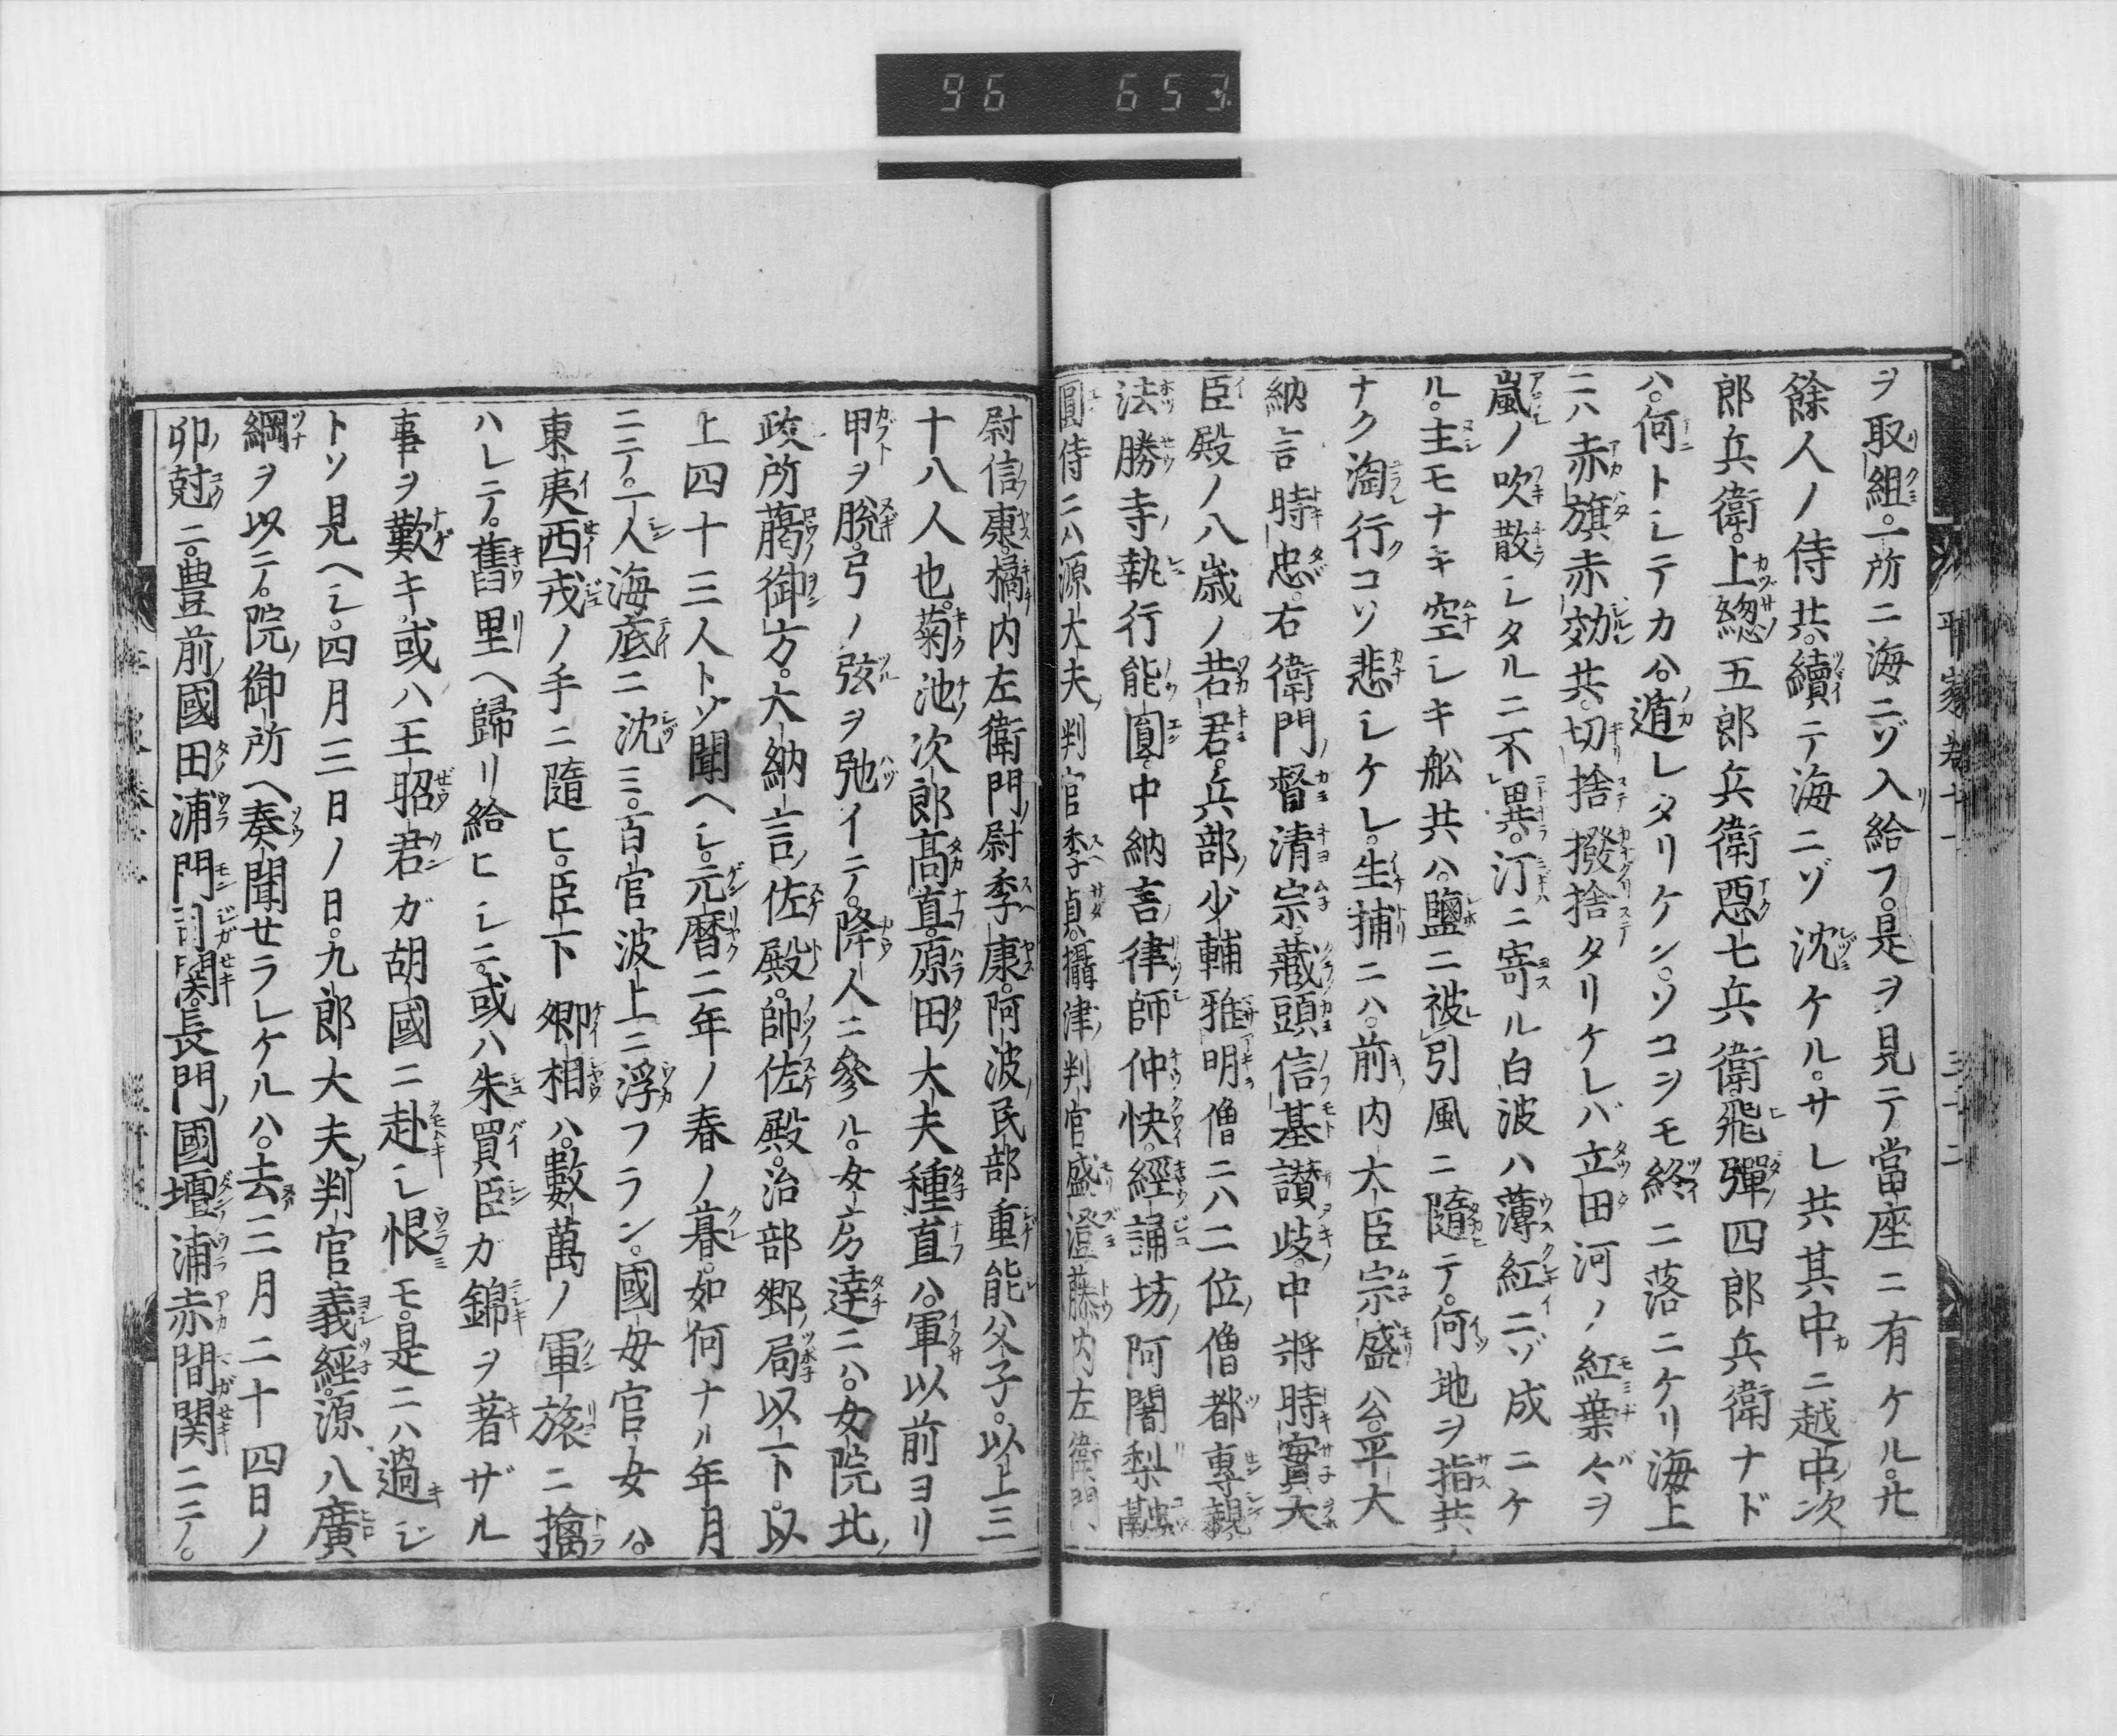 96 653
ヲ取組。一所ニ海ニゾ入給フ。是ヲ見テ當座ニ有ケル。廿
餘人ノ侍共。續テ海ニゾ沈ケル。サレ共其中ニ越中次
郎兵衛。上總五郎兵衛惡七兵衛飛彈四郎兵衛ナド
ハ。何トシテカハ遁レタリケン。ソコヲモ終ニ落ニケリ海上
ニハ赤旗赤効共切捨撥捨タリケレバ立田河ノ紅葉々ヲ
嵐ノ吹散シタルニ不異。汀ニ寄ル白波ハ薄紅ニゾ成ニケ
ル。主モナキ空シキ舩共ハ。鹽ニ被引風ニ隨テ。何地ヲ指共
ナク淘行コソ悲シケレ。生捕ニハ。前内大臣宗盛公。平大
納言時忠。右衛門督清宗。藏頭信基讃歧中將時實大
臣殿ノ八歳ノ若君。兵部少輔雅明僧ニハ二位僧都專親。
法勝寺執行能圓。中納言律師仲快。經誦坊阿闍梨融
圓侍ニハ源大夫判官季貞。攝津判官盛澄藤内左衛門
尉信康。橘内左衛門尉季康。阿波民部重能父子。以上三
十八人也。菊池次郎髙直原田大夫種直ハ。軍以前ヨリ
甲ヲ脱弓ノ弦ヲ弛イテ。降人ニ參ル。女房達ニハ。女院北
政所﨟御方。大納言佐殿。帥佐殿。治部郷局以下。以
上四十三人トゾ聞ヘシ。元暦二年ノ春ノ暮。如何ナル年月
ニテ。一人海底ニ沈ミ。百官波上ニ浮フラン。國母官女ハ。
東夷西戎ノ手ニ隨ヒ。臣下卿相ハ。數萬ノ軍旅ニ擒
ハレテ。舊里ヘ歸リ給ヒシニ。或ハ朱買臣ガ錦ヲ著ザル
事ヲ歎キ。或ハ王昭君ガ胡國ニ赴シ恨モ。是ニハ過ジ
トソ見ヘシ。四月三日ノ日。九郎大夫判官義經。源八廣
綱ヲ以テ。院御所ヘ奏聞セラレケルハ。去三月二十四日ノ
卯尅ニ。豊前國田浦門司関。長門國壇浦赤間関ニテ。
平家巻十一
三十二